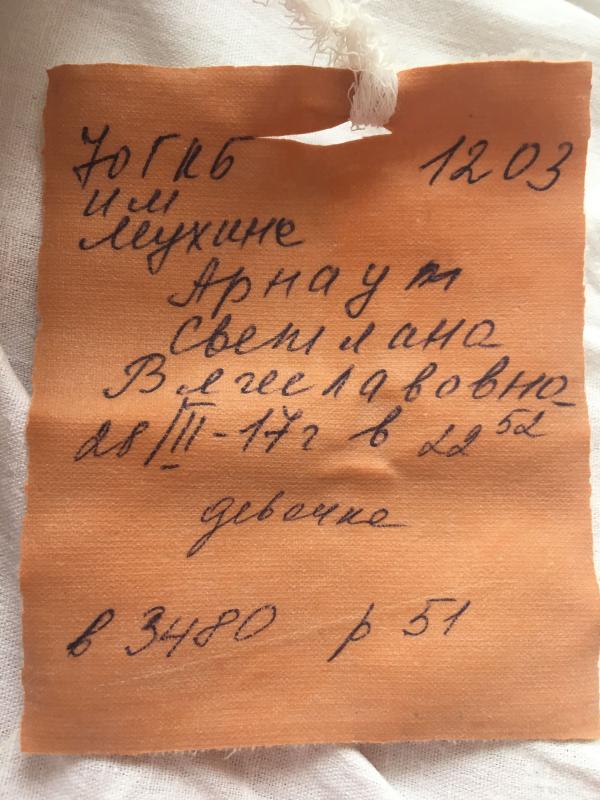 70ГКБ 1203
им
Мухине
Арнаут
Светлана
Вячеславовна
28/III-17г в 22 52
девочка
в 3480 р 51